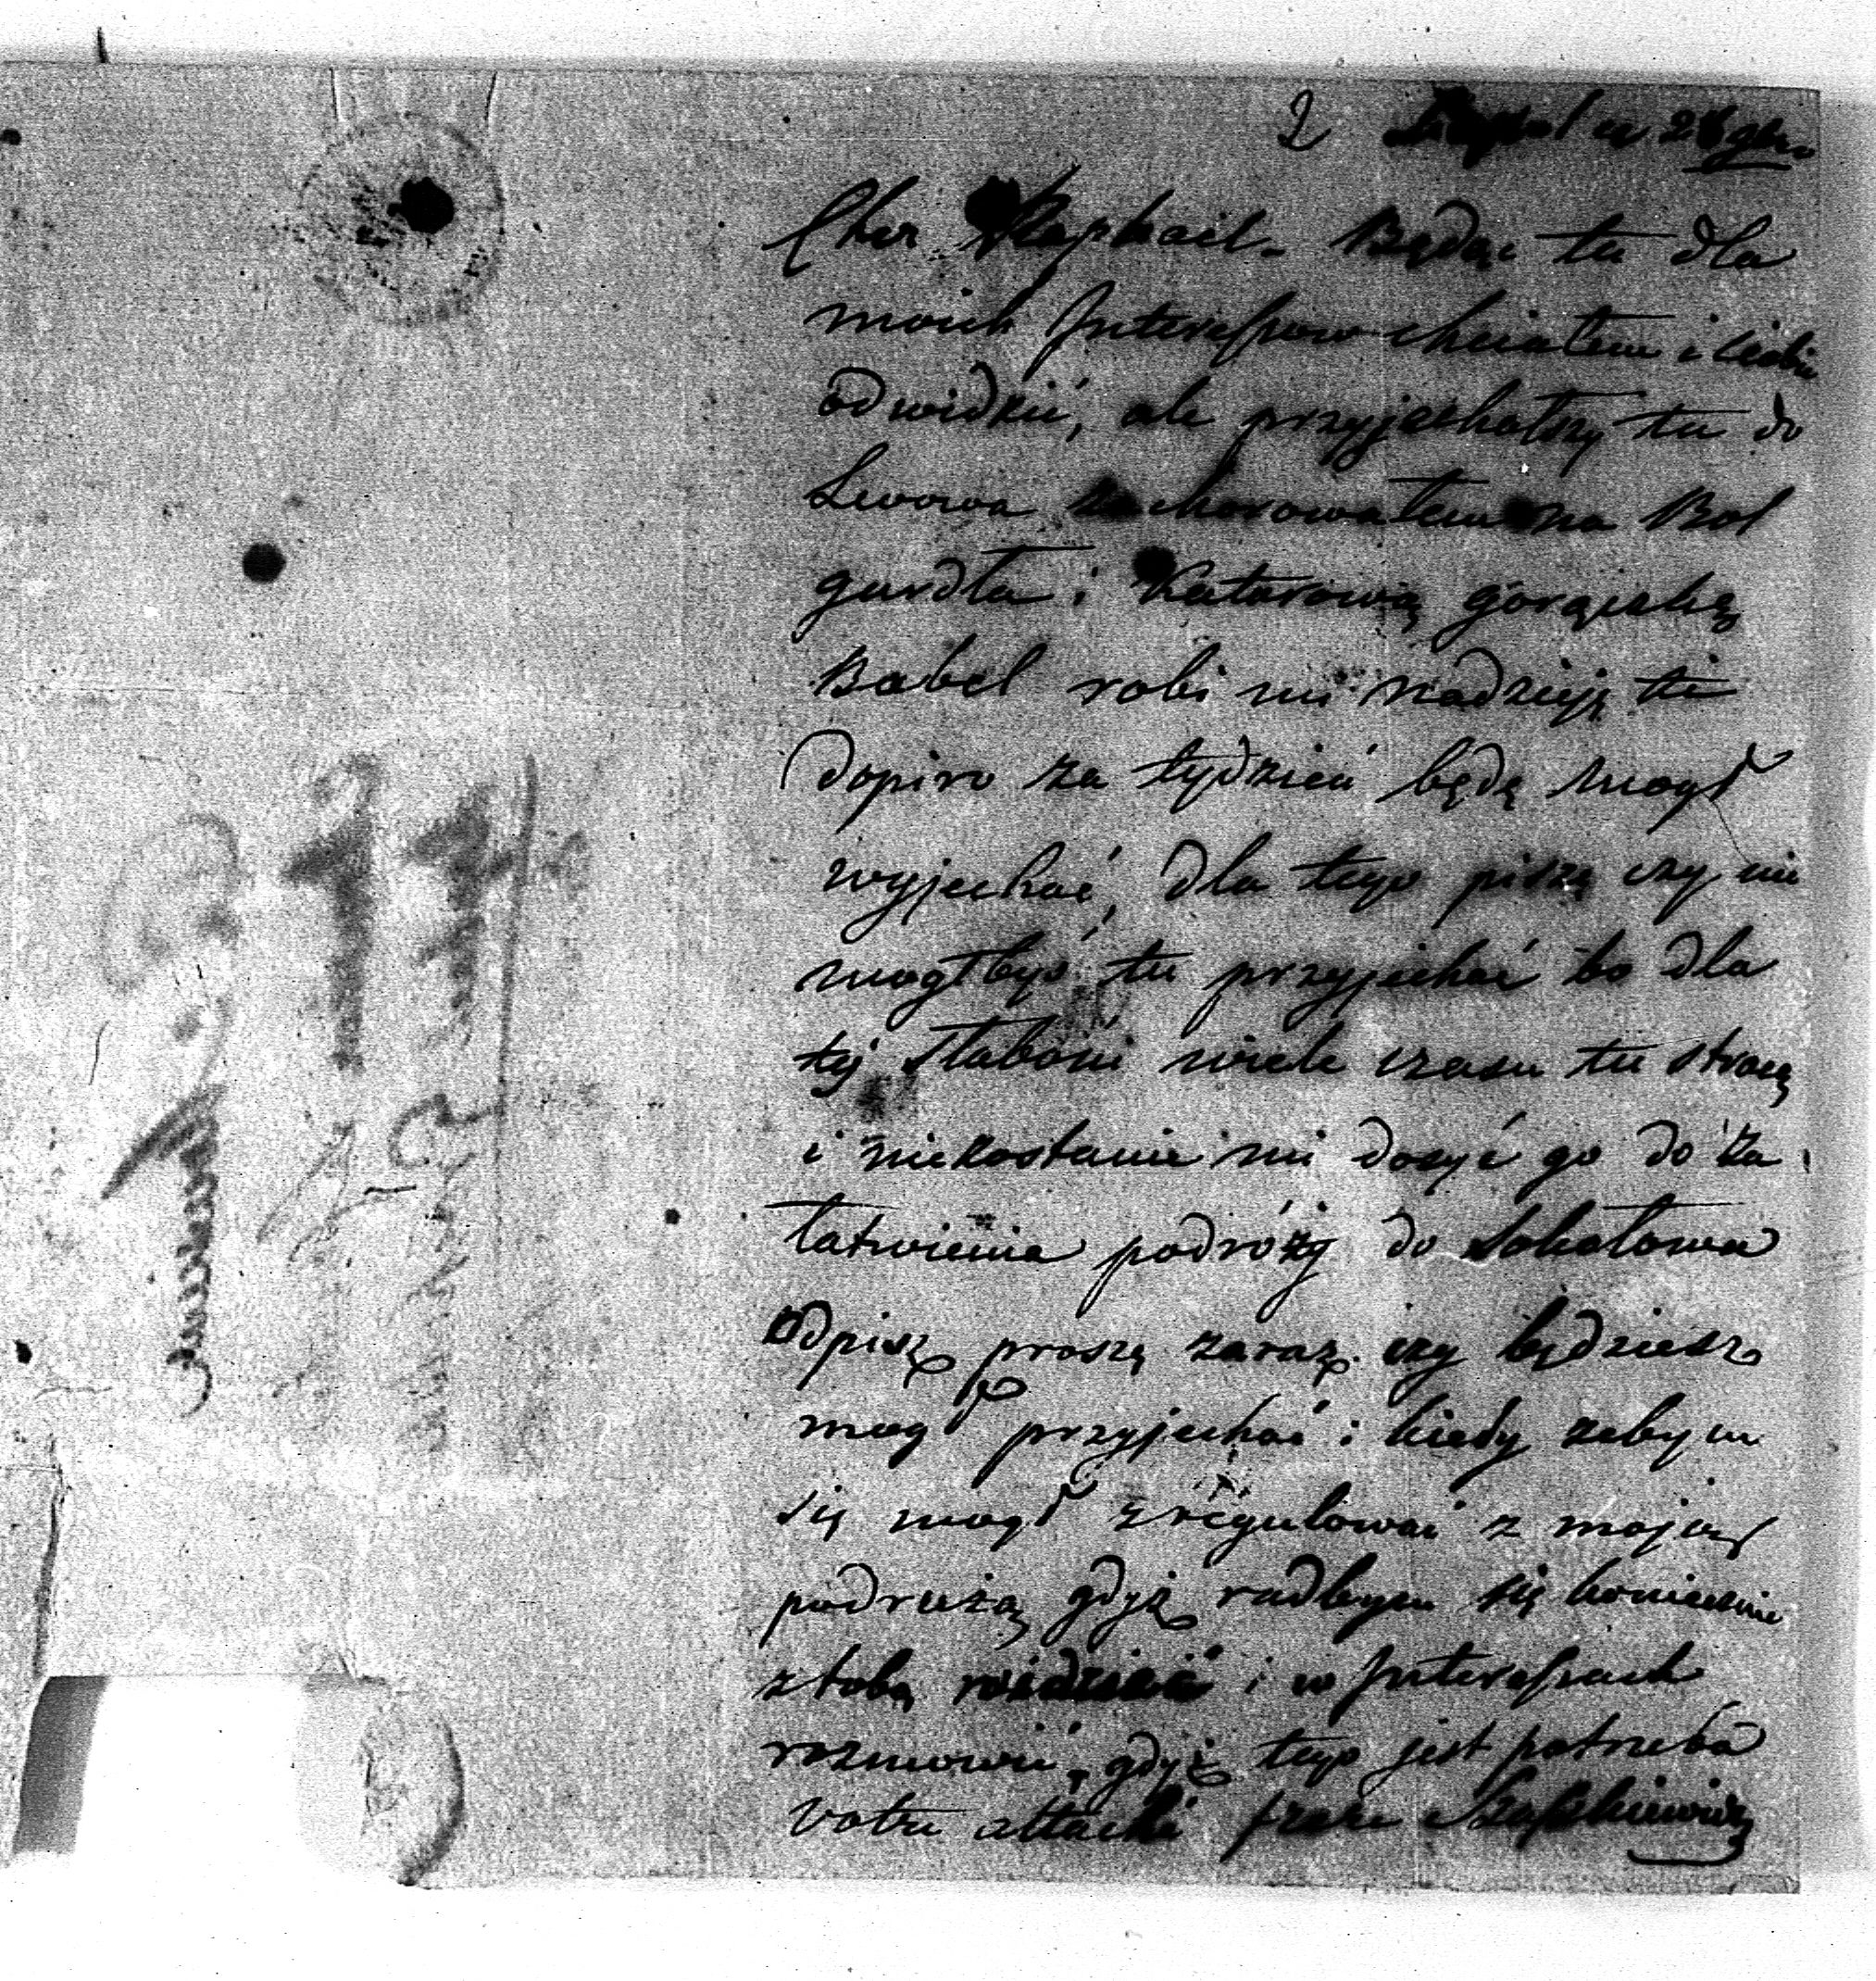 2 Leopol le 28 gbr.
Cher Raphael. Będąc tu dla
moich Interessow chciałem i Ciebie
odwidzić, ale przyjechałszy tu do
Lwowa zachorowałem na Bol
gardła i Katarową gorączkę
Babel robi mi nadzieję że
dopiro za tydzień będę mogł
wyjechać, dla tego piszę czy nie
mogłbyś tu przyjechać bo dla
tej słabości wiele czasu tu stracę
i niezostanie mi dosyć go do za
łatwienia podróży do Sokołowa
Odpisz proszę zaraz czy będziesz
mogł przyjechać i kiedy zebym
się mogł zregulować z moją
podrużą gdyż radbym się koniecznie
z tobą widzieć i w Interessach
rozmowić, gdyż tego jest potrzeba
votre attaché frere